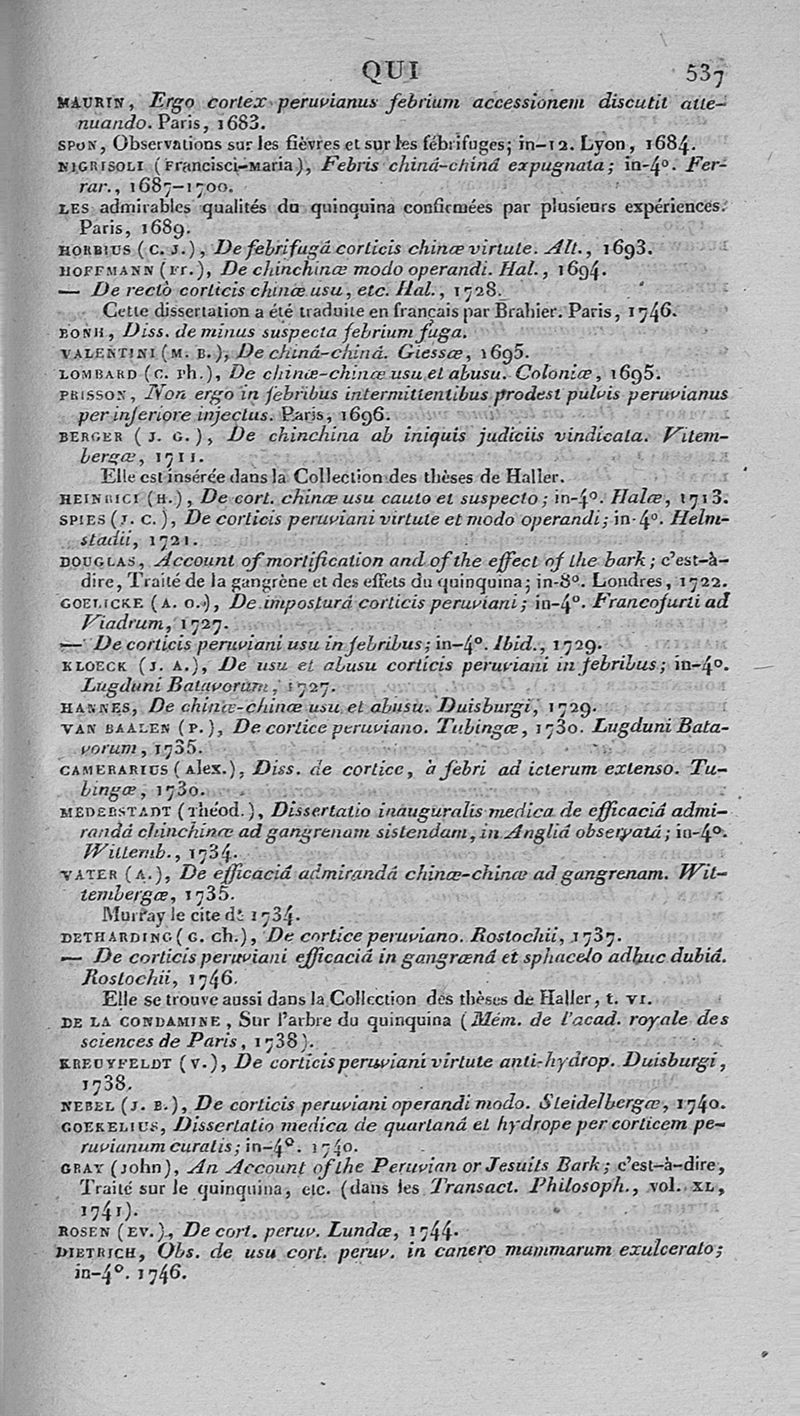 QUI 537
MAURIN, Ergo cortex peruvianus febrium accessionem discutit atte-
nuando. Paris, 1683.
SPON, Observations sur les fièvres et sur les fébrifuges; in-12. Lyon, 1684.
NIGRISOLI (Francisci-Maria), Febris chinâ-chinâ expugnata; in-4°. Fer-
rar., 1687-1700.
LES admirables qualités du quinquina confirmées par plusieurs expériences.
Paris, 1689.
HORBIUS (C. J.), De febrifugâ corticis chinæ virtute. Alt., 1693.
HOFFMANN (Fr.), De chinchinæ modo operandi. Hal., 1694.
— De recto corticis chinæ usu, etc. Hal., 1728.
Cette dissertation a été traduite en français par Brahier. Paris, 1746.
BONH, Diss. de minus suspecta febrium fuga.
VALENTINI (M. B.), De chinâ-chinâ. Giessæ, 1695.
LOMBARD (C. Ph.), De chinæ-chinæ usu et abusu. Coloniæ, 1695.
PRISSON, Non ergo in febribus intermittentibus prodest pulvis peruvianus
per inferiore injectus. Paris, 1696.
BERGER (J. G.), De chinchina ab iniquis judiciis vindicata. Vitem-
bergæ, 1711.
Elle est insérée dans la Collection des thèses de Haller.
HEINRICI (H.), De cort. chinæ usu cauto et suspecto; in-4°. Halæ, 1713.
SPIES (J. C.), De corticis peruviani virtute et modo operandi; in-4°. Helm-
stadii, 1721.
DOUGLAS, Account of mortification and of the effect of the bark; c'est-à-
dire, Traité de la gangrène et des effets du quinquina; in-8°. Londres, 1722.
GOELICKE (A. O.), De imposturâ corticis peruviani; in-4°. Francofurti ad
Viadrum, 1727.
— De corticis peruviani usu in febribus; in-4°. Ibid., 1729.
KLOECK (J. A.), De usu et abusu corticis peruviani in febribus; in-4°.
Lugduni Batavorum, 1727.
HANNES, De chinæ-chinæ usu et abusu. Duisburgi, 1729.
VAN BAALEN (P.), De cortice peruviano. Tubingæ, 1730. Lugduni Bata-
vorum, 1735.
CAMERARIUS (Alex.), Diss. de cortice, à febri ad icterum extenso. Tu-
bingæ, 1730.
MEDERSTADT (Théod.), Dissertatio inauguralis medica de efficaciâ admi-
randâ chinchinæ ad gangrenam sistendam, in Angliâ observatâ; in-4°.
Wittemb., 1734.
VATER (A.), De efficaciâ admirandâ chinæ-chinæ ad gangrenam. Wit-
tembergæ, 1735.
Murray le cite de 1734.
DETHARDING (G. Ch.), De cortice peruviano. Rostochii, 1737.
— De corticis peruviani efficaciâ in gangrænâ et sphacelo adhuc dubiâ.
Rostochii, 1746.
Elle se trouve aussi dans la Collection des thèses de Haller, t. VI.
DE LA CONDAMINE, Sur l'arbre du quinquina (Mém. de l'acad. royale des
sciences de Paris, 1738).
KREUYFELDT (V.), De corticis peruviani virtute anti-hydrop. Duisburgi,
1738.
NEBEL (J. B.), De corticis peruviani operandi modo. Steidelbergæ, 1740.
GOEKELIUS, Dissertatio medica de quartanâ et hydrope per corticem pe-
ruvianum curatis; in-4°. 1740.
GRAY (John), An Account of the Peruvian or Jesuits Bark; c'est-à-dire,
Traité sur le quinquina, etc. (dans les Transact. Philosoph., vol. XL,
1741).
ROSEN (EV.), De cort. peruv. Lundæ, 1744.
DIETRICH, Obs. de usu cort. peruv. in canero mammarum exulcerato;
in-4°. 1746.